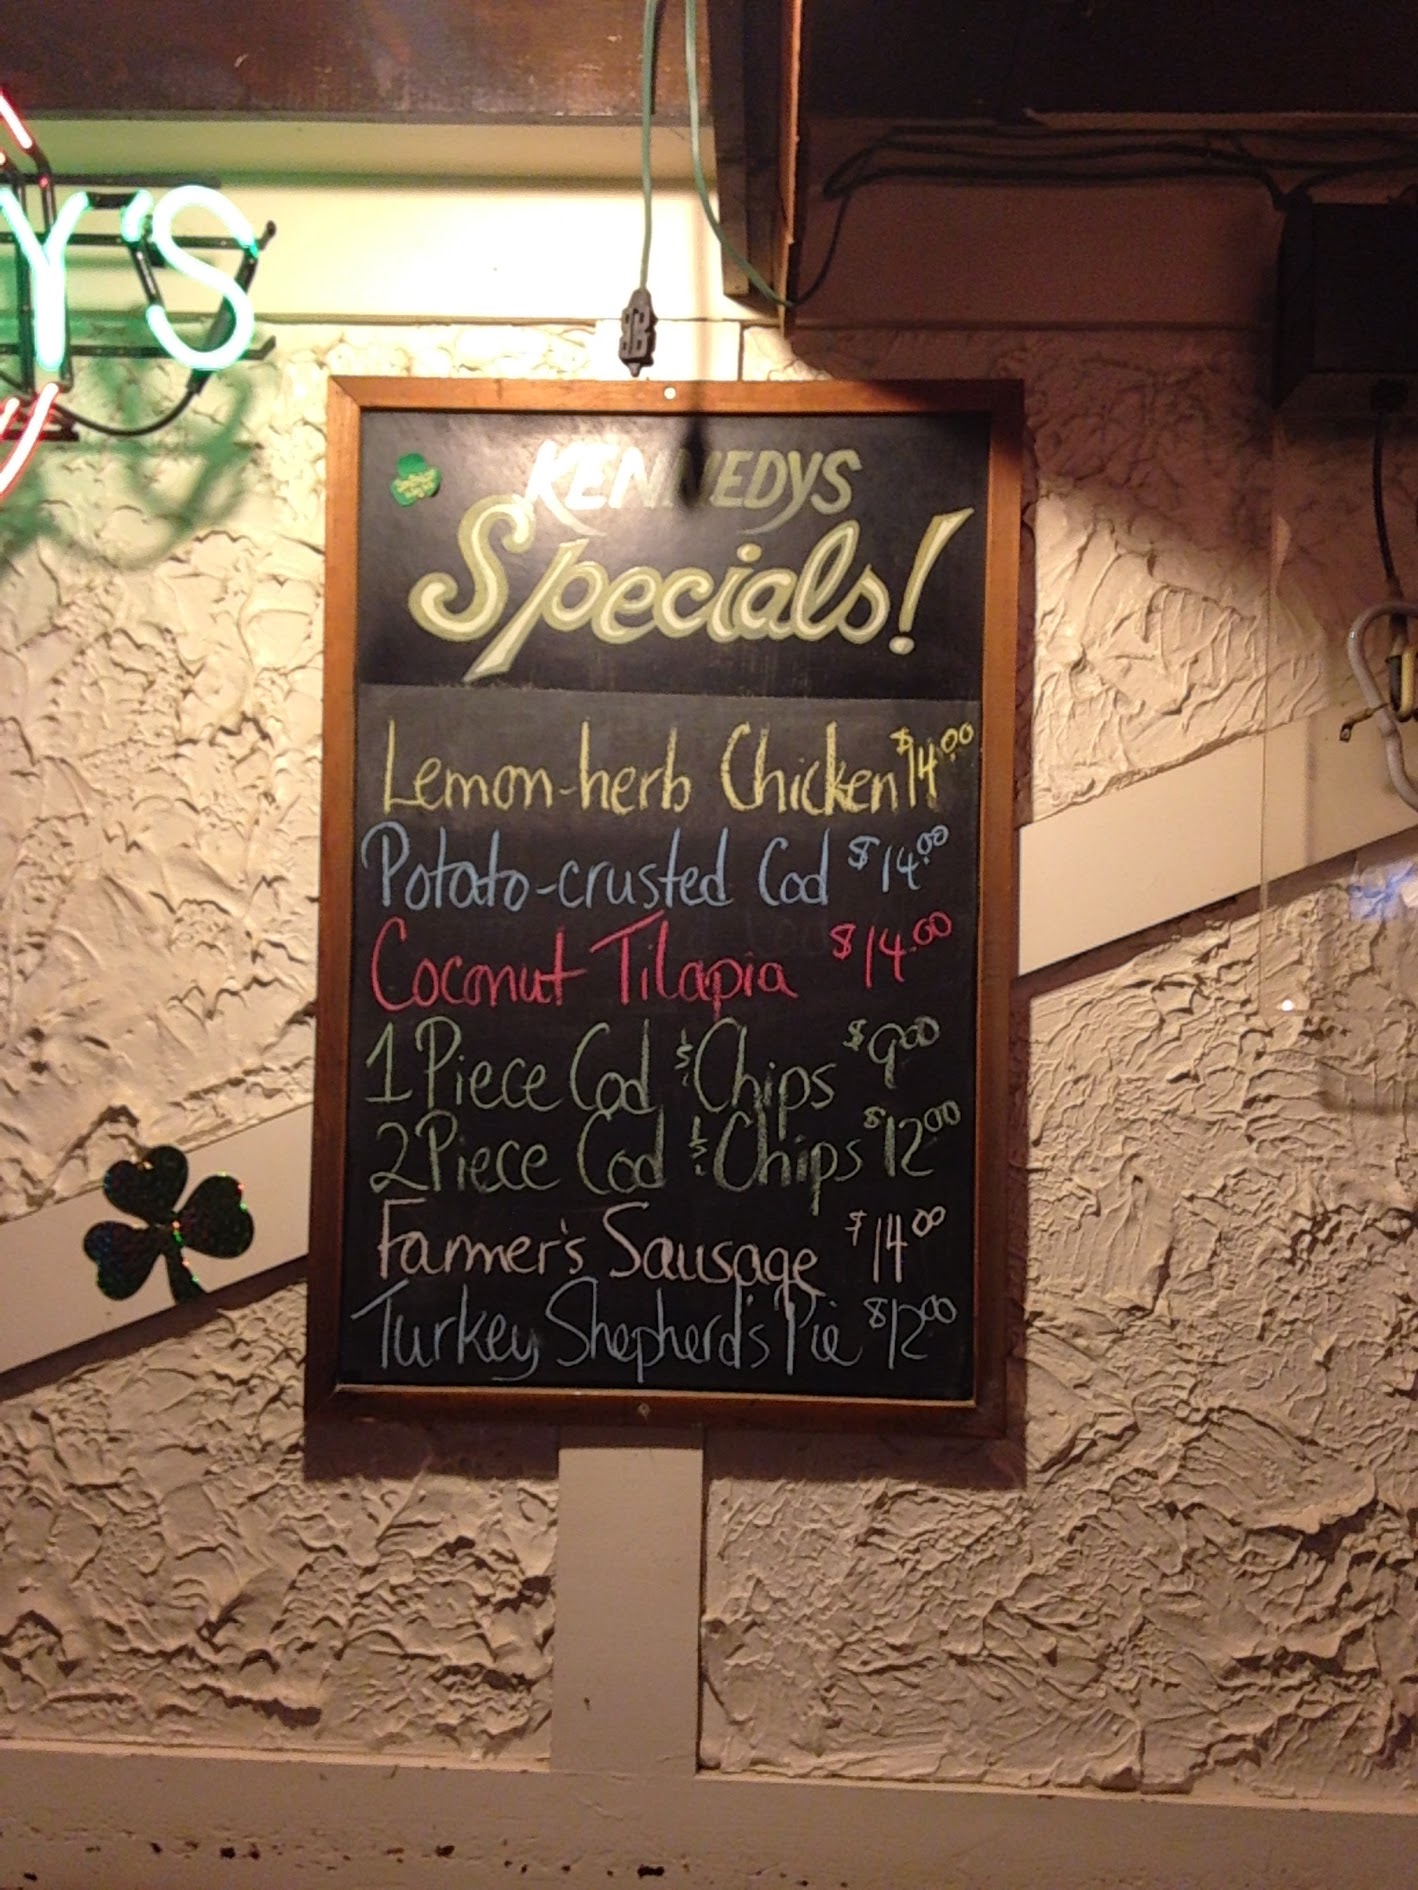 Y'S
KENNEDYS
Specials!
Lemon-herb Chicken $14.00
Potato-crusted Cod $14.00
Coconut Tilapia $14.00
1 Piece Cod & Chips $9.00
2 Piece Cod & Chips $12.00
Farmer's Sausage $14.00
Turkey Shepherd's Pie $12.00